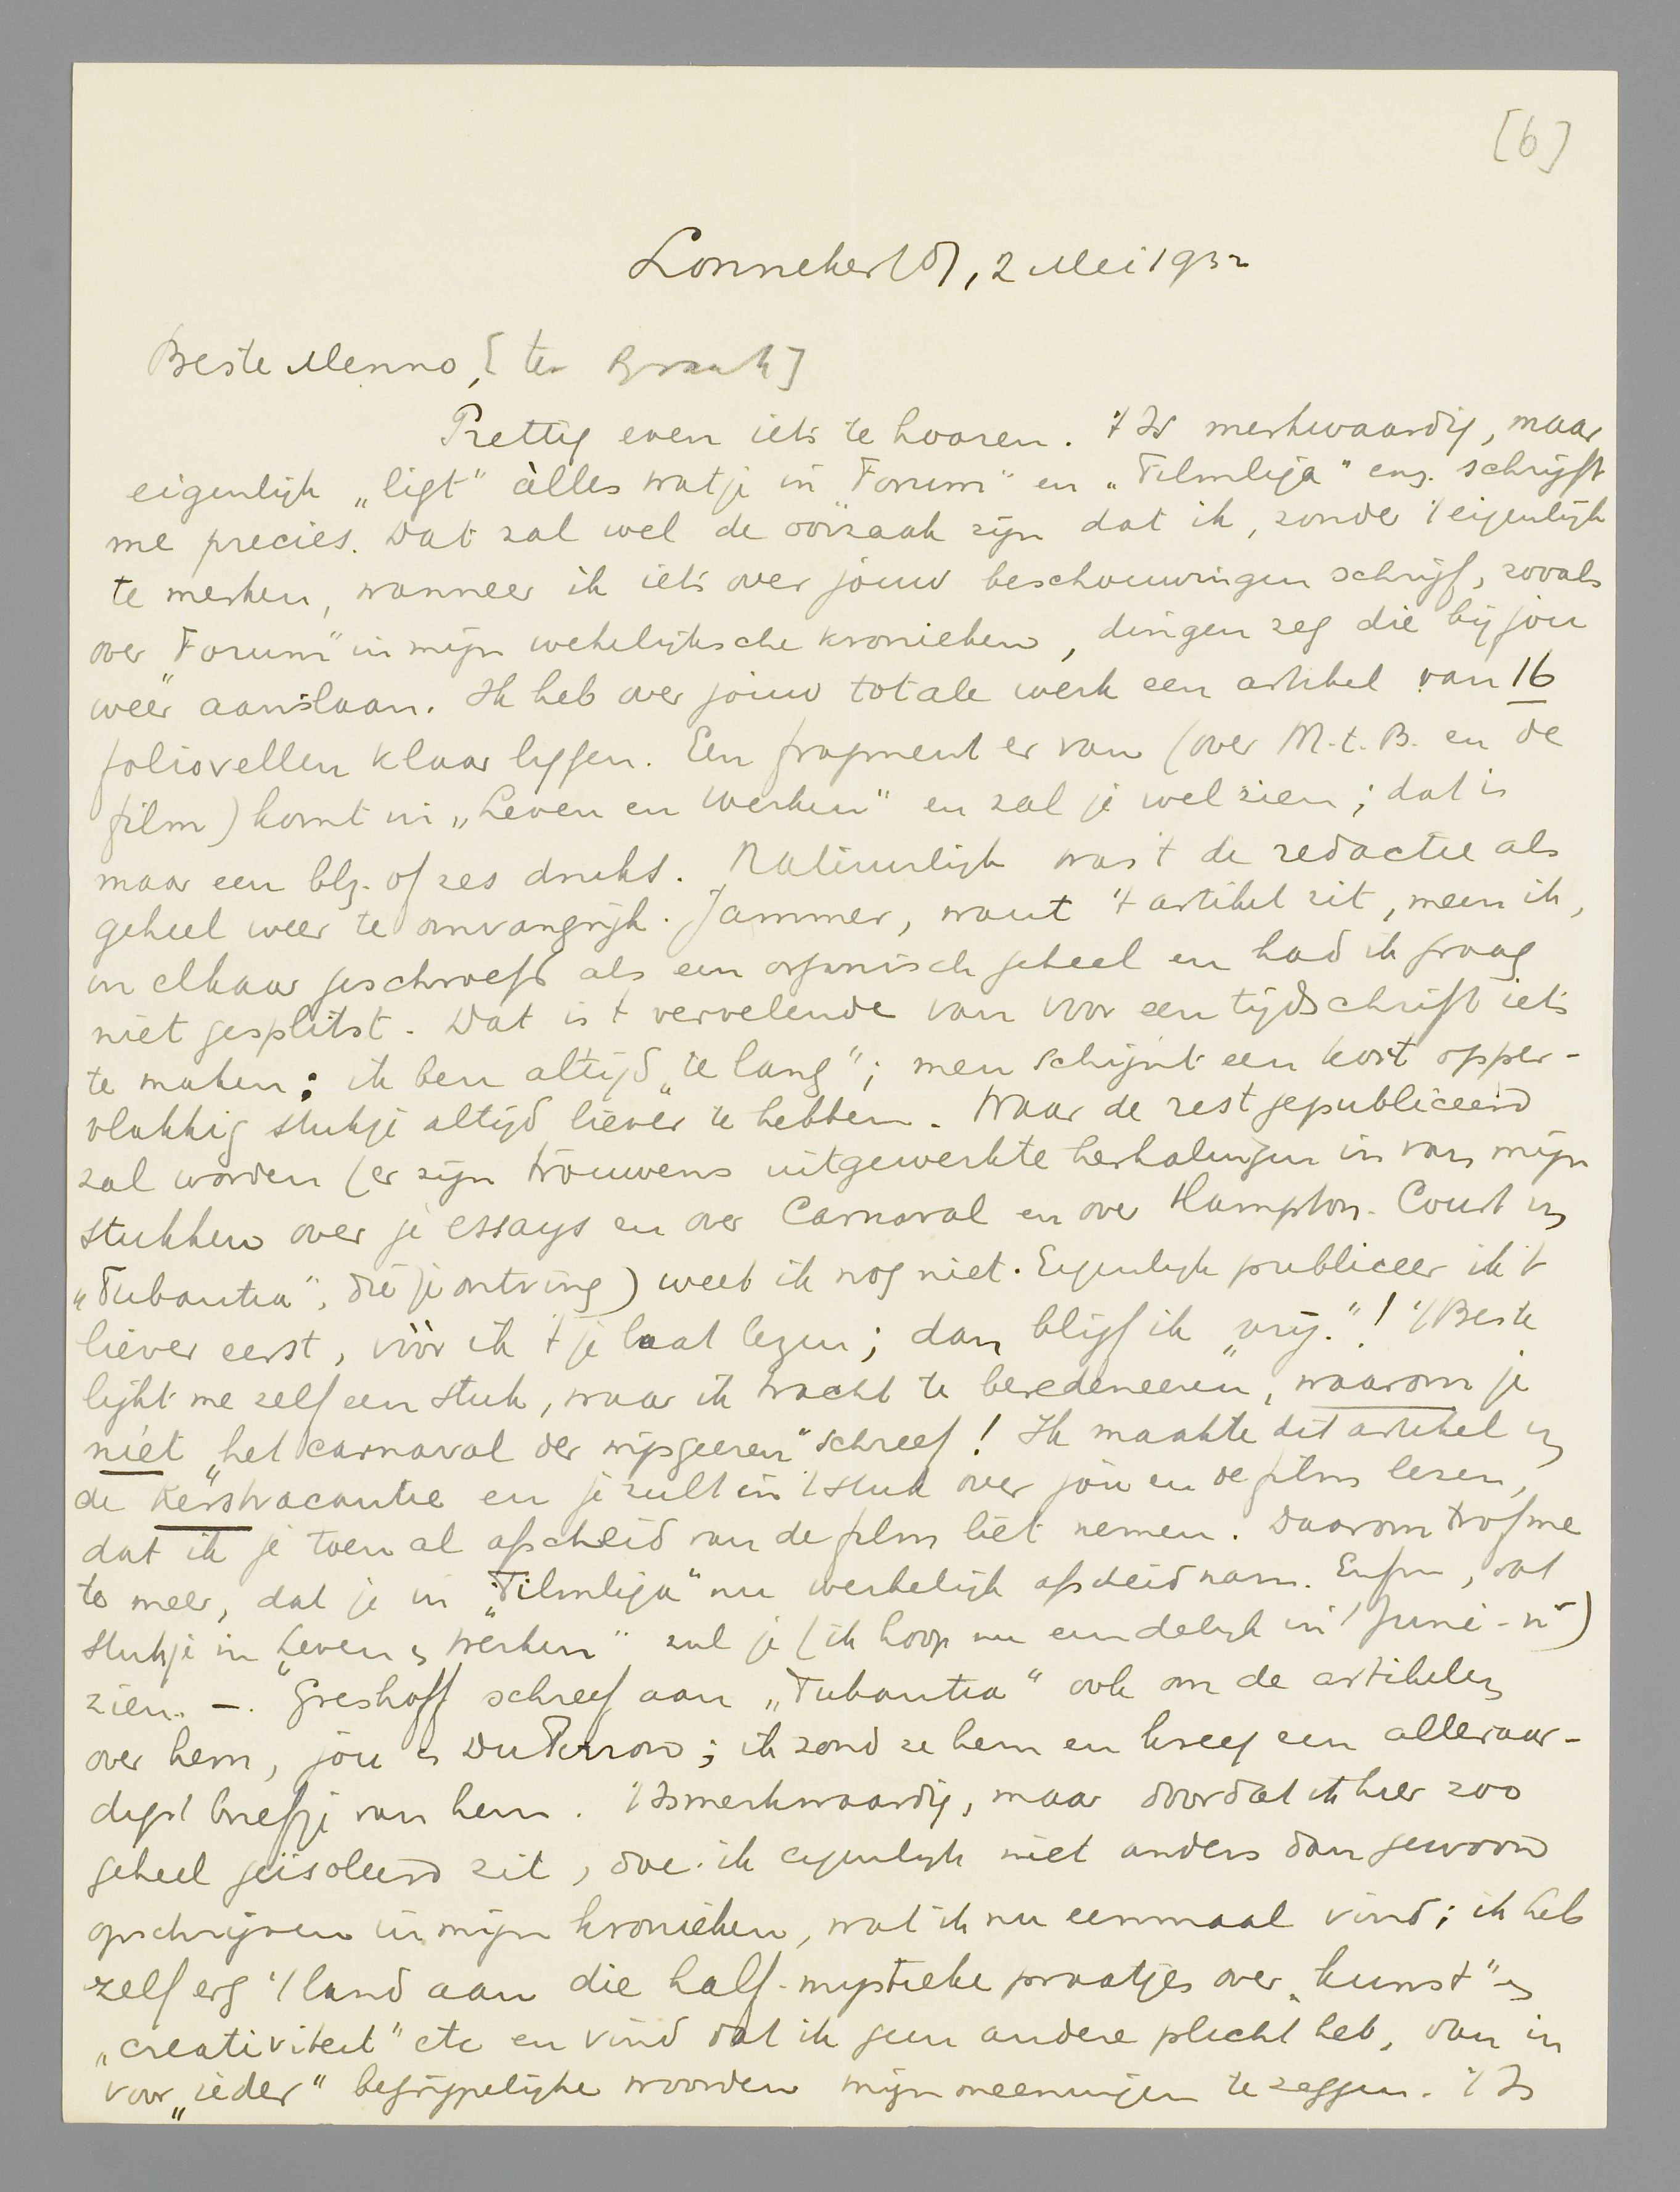 [6]
Lonneker (O), 2 Mei 1932
Beste Menno, [ter Braak]
Prettig even iets te hooren. 't Is merkwaardig, maar
eigenlijk „ligt" àlles wat je in „Forum" en „Filmliga" enz. schrijft
me precies. Dat zal wel de oorzaak zijn dat ik, zonder 't eigenlijk
te merken, wanneer ik iets over jouw beschouwingen schrijf, zooals
over „Forum" in mijn wekelijksche kronieken, dingen zeg die bij jou
weer aanslaan. Ik heb over jouw totale werk een artikel van 16
foliovellen klaar liggen. Een fragment er van (over M.t.B. en de
film) komt in „Leven en Werken" en zal je wel zien; dat is
maar een blz. of zes druks. Natuurlijk was 't de redactie als
geheel weer te omvangrijk. Jammer, want 't artikel zit, meen ik,
in elkaar geschroefd als een organisch geheel en had ik graag
niet gesplitst. Dat is 't vervelende van voor een tijdschrift iets
te maken: ik ben altijd „te lang"; men schijnt een kort opper-
vlakkig stukje altijd liever te hebben. Waar de rest gepubliceerd
zal worden (er zijn trouwens uitgewerkte herhalingen in van mijn
stukken over je essays en over Carnaval en over Hampton-Court in
„Tubantia", die je ontving) weet ik nog niet. Eigenlijk publiceer ik 't
liever eerst, vóór ik 't je laat lezen; dan blijf ik „vrij."! 't Beste
lijkt me zelf een stuk, waar ik tracht te beredeneeren, waarom je
niet „het carnaval der wijsgeeren" schreef! Ik maakte dit artikel in
de Kerstvacantie en je zult in 't stuk over jou en de film lezen,
dat ik je toen al afscheid van de film liet nemen. Daarom trof me
te meer, dat je in „Filmliga" nu werkelijk afscheid nam. Enfin, dat
stukje in „Leven en Werken" zul je (ik hoop nu eindelijk in 't Juni-nr)
zien. —. Greshoff schreef aan „Tubantia" ook om de artikelen
over hem, jou en Du Perron; ik zond ze hem en kreeg een alleraar-
digst briefje van hem. 't Is merkwaardig, maar doordat ik hier zoo
geheel geïsoleerd zit, doe ik eigenlijk niet anders dan gewoon
opschrijven in mijn kronieken, wat ik nu eenmaal vind; ik heb
zelf erg 't land aan die half-mystieke praatjes over „kunst" en
„creativiteit" etc en vind dat ik geen andere plicht heb, dan in
voor „ieder" begrijpelijke woorden mijn meeningen te zeggen. 't Is